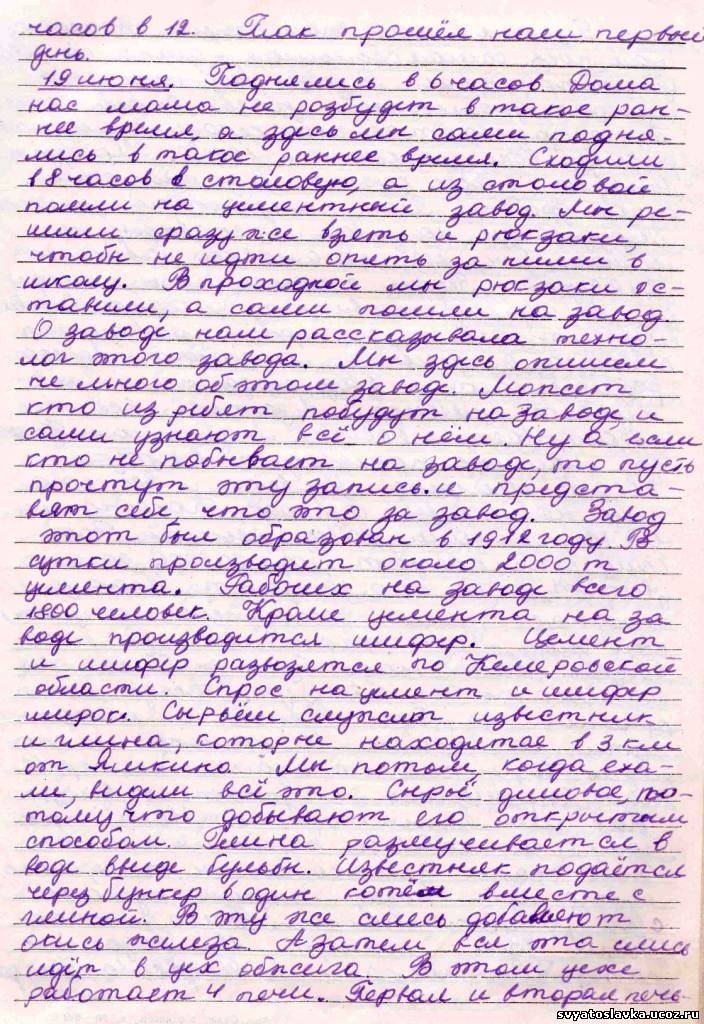 часов в 12. Так прошёл наш первый
день.
19 июня. Поднялись в 6 часов. Дома
нас мама не розбудет в такое ран-
нее время, а здесь мы сами подня-
лись в такое раннее время. Сходили
в 8 часов в столовую, а из столовой
пошли на цементный завод. Мы ре-
шили сразу же взять и рюкзаки,
чтобы не идти опять за ними в
школу. В проходной мы рюкзаки ос-
тавили, а сами пошли на завод.
О заводе нам рассказывала техно-
лог этого завода. Мы здесь опишем
не много об этом заводе.Может
кто из ребят побудут на заводе, и
сами узнают всё о нём. Ну а если
кто не побывает на заводе, то пусть
прочтут эту запись и предста-
вят себе что это за завод. Завод
этот был образован в 1912 году. В
сутки производит около 2000 т
цемента. Рабочих на заводе всего
1800 человек. Кроме цемента на за
воде производится шифер. Цемент
и шифер развозятся по Кемеровской
области. Спрос на цемент и шифер
широк. Сырьём служит известняк
и глина, которые находятся в 3 км
от Яшкино. Мы потом, когда еха-
ли, видели всё это. Сырьё дешовое, по-
тому что добывают его открытым
способом. Глина размучивается в
воде ввиде бульбы. Известняк подаётся
через бункер в один котёл вместе с
глиной. В эту же смесь добавляют
окись железа. А затем вся эта смесь
идёт в цех обжига. В этом цехе
работает 4 печи. Первая и вторая печь-
svyatoslavka.ucoz.ru